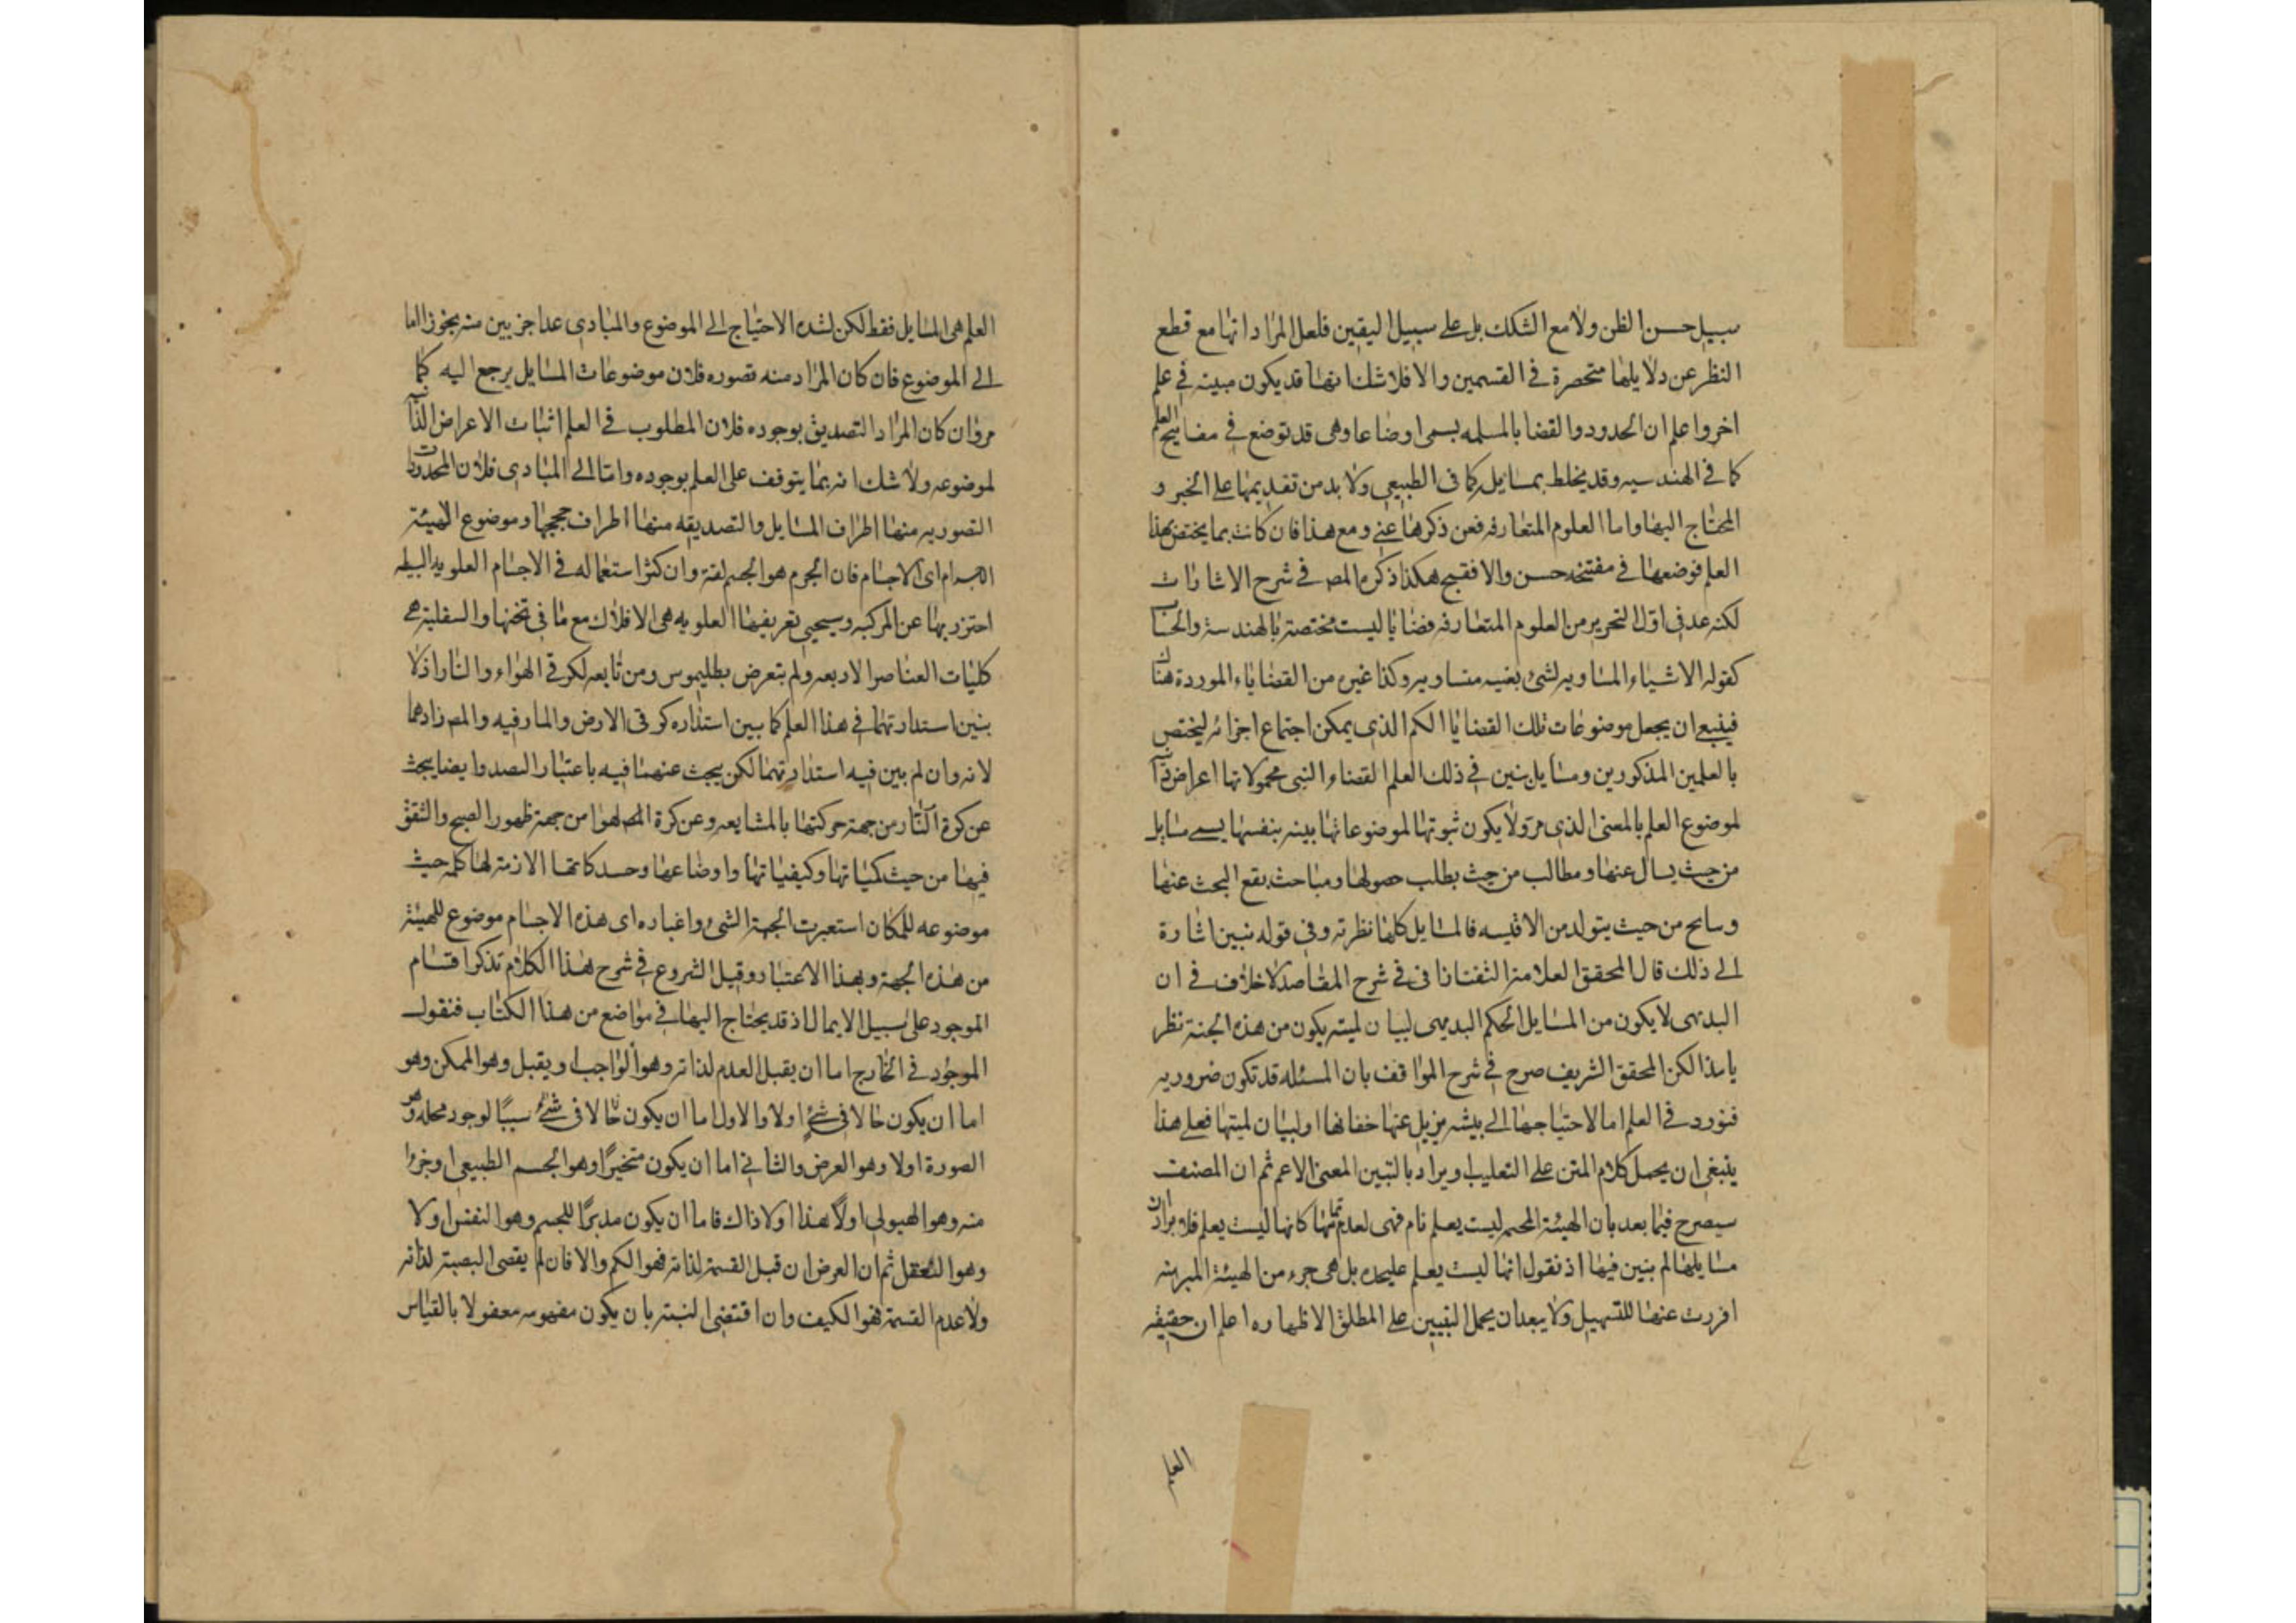 سبيل حسن الظن ولا مع الشكك بل على سبيل اليقين فلعل المراد انها مع قطع
النظر عن دلايلها منحصرة في القسمين والا فلا شك انها قد يكون مبينه في علم
اخر واعلم ان الحدود والقضايا المسلمه يسمى اوضاعا وهى قد توضع في مفاتيح العلم
كما في الهندسيه وقد يخلط بمسايله كما في الطبيعى ولا بد من تقديمها على الخبر و
المحتاج اليها واما العلوم المتعارفه فعن ذكرها غنى ومع هذا فان كانت بما يختص بهذا
العلم فوضعها في مفتتحه حسن والا فقبيح هكذا ذكره المصـ في شرح الاشارات
لكنه عد في اول التحرير من العلوم المتعارفه قضايا ليست مختصة بالهندسة والحساب
كقوله الاشياء المساويه لشىء بعينه متساويه وكذا غيره من القضاياء الموردة هناك
فينبغى ان يجعل موضوعات تلك القضايا الكم الذى يمكن اجتماع اجزائه ليختص
بالعلمين المذكورين ومسايل يبين في ذلك العلم القضاء التى محمولاتها اعراض
لموضوع العلم بالمعنى الذى مر ولا يكون ثبوتها لموضوعاتها بينه بنفسها يسمى مسايل
من حيث يسال عنها ومطالب من حيث يطلب حصولها ومباحث يقع البحث عنها
من حيث يتولد من الاقيسه فالمسايل كلها نظرية وفى قوله يبين اشارة
الى ذلك قال المحقق العلامة التفتازانى في شرح المقاصد لا خلاف في ان
البديهى لا يكون من المسايل الحكم البديهى لبيان لميته يكون من هذه الجهة نظر
يا هذا لكن المحقق الشريف صرح في شرح المواقف بان المسئله قد تكون ضروريه
فتورد في العلم اما لاحتياجها الى تنبيه يزيل عنها خفائها او لبيان لميتها فعلى هذا
ينبغى ان يحمل كلام المتن على التغليب او يراد بالتبين المعنى الاعم ثم ان المصنف
سيصرح فيما بعد بان الهيئة المجسمه ليست بعلم تام فهى لعدم تمامها كانها ليست بعلم فلا يراد ان
مسايلها لم يبين فيها اذ نقول انها ليست بعلم عليحده بل هى جزء من الهيئة المبرهنه
افردت عنها للتسهيل ولا يبعد ان يحمل التبيين على المطلق الاظهاره اعلم ان حقيقة
العلم هى المسايل فقط لكن لشدة الاحتياج الى الموضوع والمبادى عدا جزيين منه تجوزا اما
الى الموضوع فان كان المراد منه تصوره فلان موضوعات المسايل يرجع اليه كما
مر وان كان المراد التصديق بوجوده فلان المطلوب في العلم اثبات الاعراض
لموضوعه ولا شك انه بما يتوقف على العلم بوجوده واما الى المبادى فلان المحدودات
التصوريه منها اطراف المسايل والتصديقه منها اطراف حججها وموضوع الهيئة
الاجرام اى الاجسام فان الجرم هو الجسم لغة وان كثر استعماله في الاجسام العلويه البسيطه
احترز بها عن المركبه وسيجيى تعريفها العلويه هى الافلاك مع ما في ثخنها والسفلية هى
كليات العناصر الاربعه ولم يتعرض بطليموس ومن تابعه لكرتى الهواء والنار اذ لا
يبين استدارتهما في هذا العلم كما بين استداره كرتى الارض والما رفيه والمصـ زادهما
لانه وان لم يبين فيه استدارتهما لكن يبحث عنهما فيه باعتبار البعد وايضا يبحث
عن كرة النار من جهة حركتها بالمشايعه وعن كرة الهوا من جهة ظهور الصبح والشفق
فيها من حيث كمياتها وكيفياتها واوضاعها وحركاتها الازمة لها كلمه حيث
موضوعه للمكان استعيرت لجهة الشىء واعباره اى هذه الاجسام موضوع للهيئة
من هذه الجهة وبهذا الاعتبار وقبل الشروع في شرح هذا الكلام تذكر اقسام
الموجود على سبيل الايما اذ قد يحتاج اليها في مواضع من هذا الكتاب فنقول
الموجود في الخارج اما ان يقبل العدم لذاته وهو الواجب او يقبل وهو الممكن وهو
اما ان يكون حالا في شئ او لا والاول اما ان يكون حالا في شئ سببا لوجود محله وهو
الصورة او لا وهو العرض والثانى اما ان يكون متحيزا وهو الجسم الطبيعى او جزءا
منه وهو الهيولى او لا هذا ولا ذاك فاما ان يكون مدبرا للجسم وهو النفس او لا
وهو العقل ثم ان العرض ان قبل القسمة لذاته فهو الكم والا فان لم يقتضى النسبة لذاته
ولا عدم القسمة فهو الكيف وان اقتضى النسبة بان يكون مفهومه معقولا بالقياس